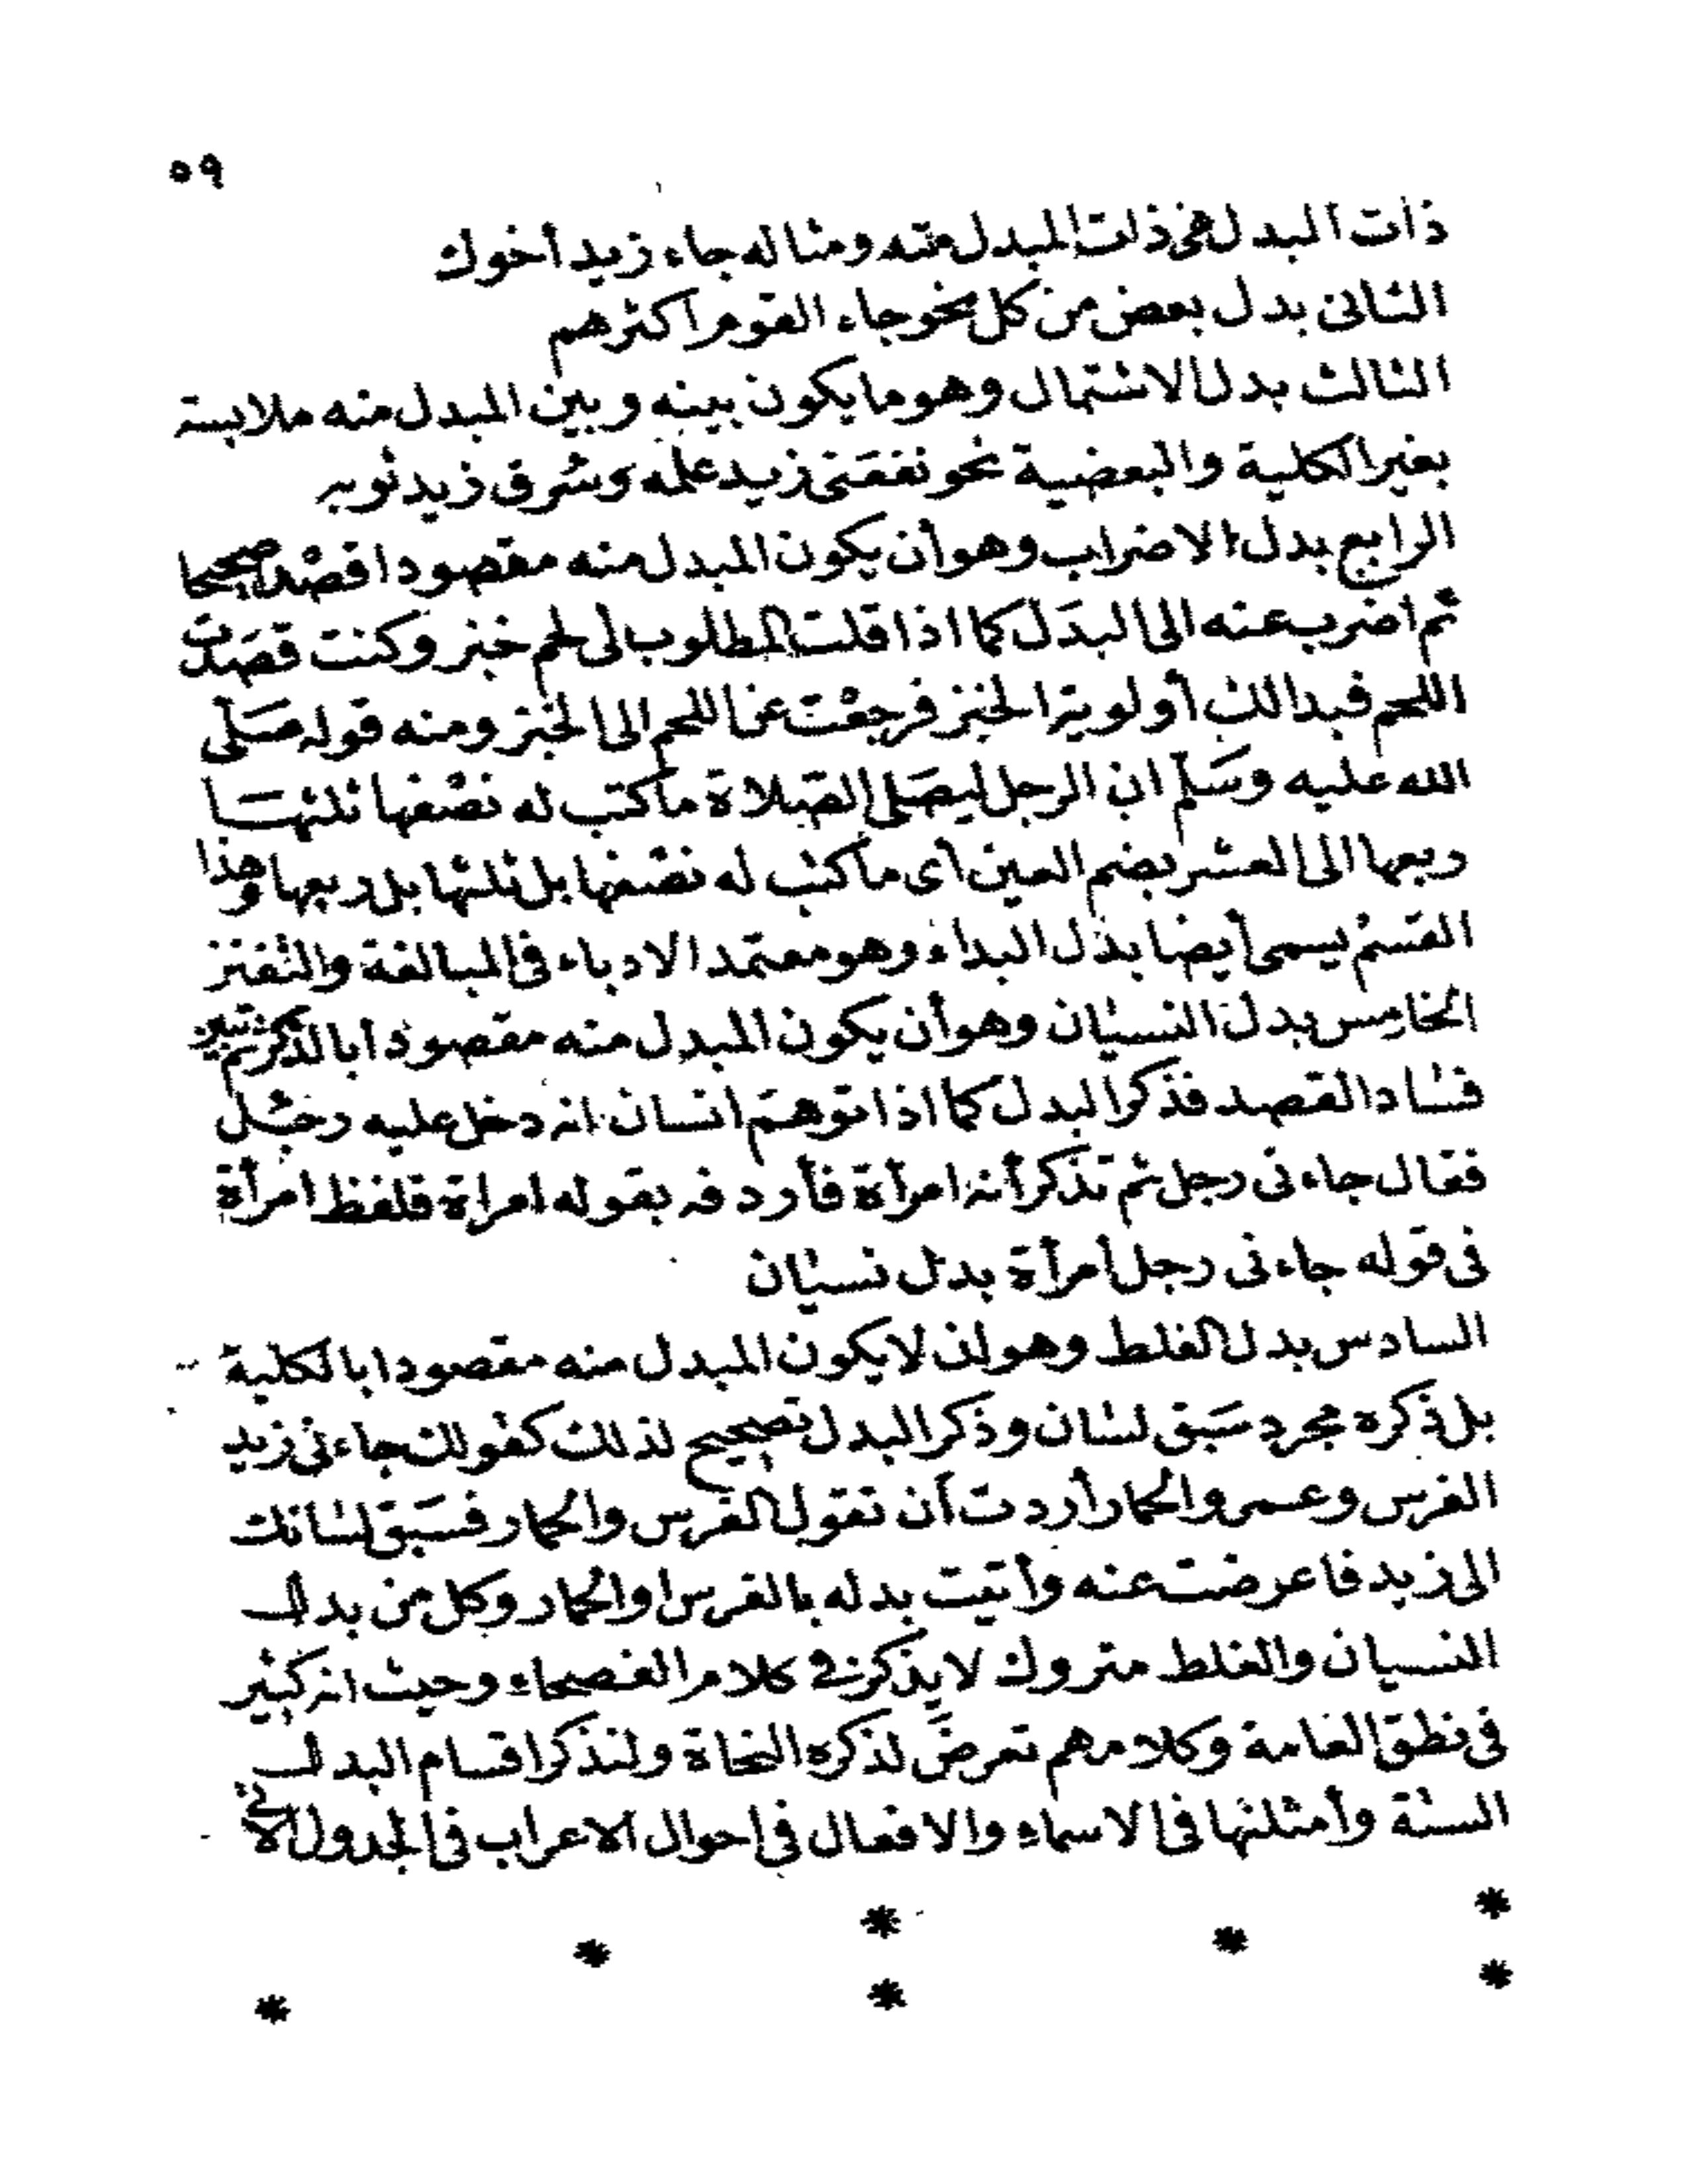 ٥٩
ذات البدل هى ذات المبدل منه ومثاله جاء زيد أخوك
الثانى بدل بعض من كل نحو جاء القوم اكثرهم
الثالث بدل الاشتمال وهو ما يكون بينه وبين المبدل منه ملابسة
بغير الكلية والبعضية نحو نفعَنى زيد علمه وسُرق زيد ثوبه
الرابع بدل الاضراب وهو أن يكون المبدل منه مقصودا قصْدا صحيحا
ثم اضرب عنه الى البدَل كما اذا قلت المطلوب لى لحم خبز وكنت قصَدت
اللحم فبدا لك أولوية الخبز فرجعْت عن اللحم الى الخبز ومنه قوله صَلَّى
الله عليه وسَلّم ان الرجل ليصَلى الصَلاة ما كتب له نصْفها ثلثهَا
ربعها الى العشر بضم العين أى ما كتب له نصْفها بل ثلثها بل ربعها وهذا
القسْم يسمى أيضا بدَل البداء وهو معتمد الادباء فى المبالغة والتفنن
الخامس بدل النسيان وهو أن يكون المبدل منه مقصودا بالذكر ثم تبين
فساد القصد فذكر البدل كما اذا توهمَ انسان انه دخل عليه رجل
فقال جاءنى رجل ثم تذكر أنه امرأة فأردفه بقوله امراة فلفظ امرأة
فى قوله جاءنى رجل أمرأة بدل نسيان
السادس بدل الغلط وهو ان لا يكون المبدل منه مقصودا بالكلية
بل ذكره مجرد سَبق لسان وذكر البدل تصحيح لذلك كقولك جاءنى زيد
الفرس وعمرو الحمار أردت أن تقول الفرس والحمار فسَبق لسانك
الى زيد فاعرضت عنه وأتيت بدله بالفرس او الحمار وكل من بدل
النسيان والغلط متروك لا يذكر فى كلام الفصحاء وحيث انه كثير
فى نطق العامة وكلامهم تعرضَ لذكره النحاة ولنذكر اقسام البدل
الستة وأمثلتها فى الاسماء والافعال فى احوال الاعراب فى الجدول الآتى
* * * *
* * *